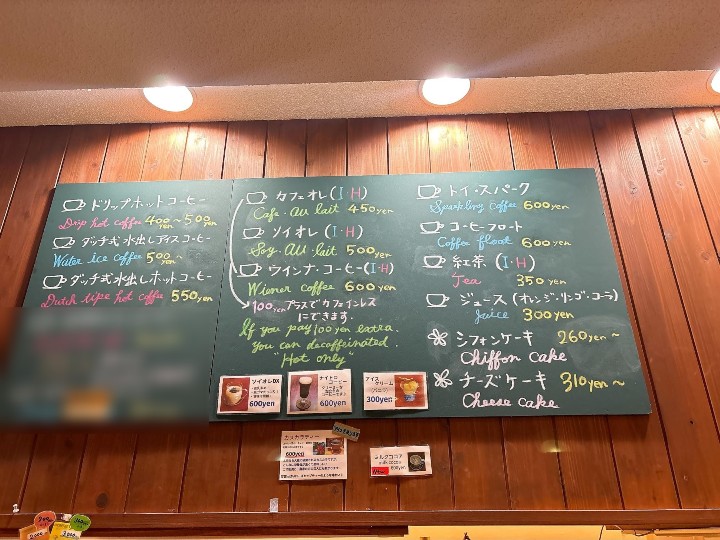 ドリップホットコーヒー
Drip hot coffee 400yen~500yen
ダッチ式水出しアイスコーヒー
Water ice coffee 500yen~
ダッチ式水出しホットコーヒー
Dutch tipe hot coffee 550yen
カフェオレ(I・H)
Cafe・au lait 450yen
ソイオレ(I・H)
Soy・au・lait 500yen
ウインナ・コーヒー(I・H)
Wiener coffee 600yen
100yenプラスでカフェインレス
にできます。
If you pay 100 yen extra.
You can decaffeinated.
"Hot only"
トイ・スパーク
Sparkling coffee 600yen
コーヒーフロート
Coffee float 600yen
紅茶(I・H)
Tea 350yen
ジュース(オレンジ・リンゴ・コーラ)
juice 300yen
シフォンケーキ 260yen~
Chiffon cake
チーズケーキ 310yen~
Cheese cake
ソイオレDX
600yen
ナイトロ
コーヒー
600yen
アイス
クリーム
(バニラ)
300yen
600yen
ミルクココア
milk cocoa
600yen